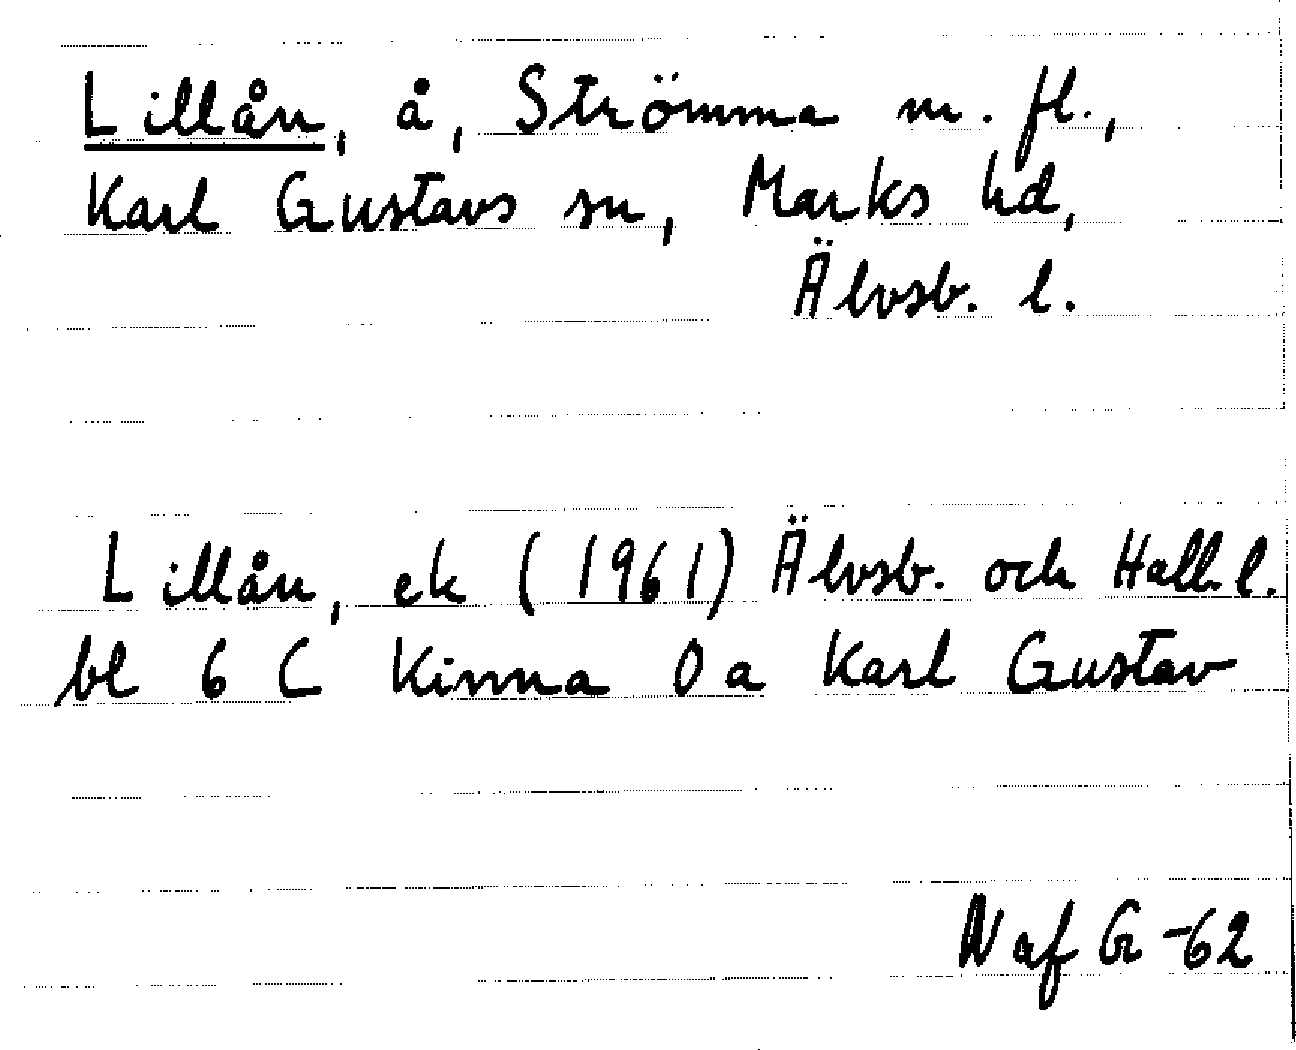 Lillån, å, Strömma m. fl.,
Karl Gustavs sn, Marks hd,
Älvsb. l.
Lillån, ek (1961) Älvsb. och Hall. l.
bl 6 C Kinna 0 a Karl Gustav
N af G -62